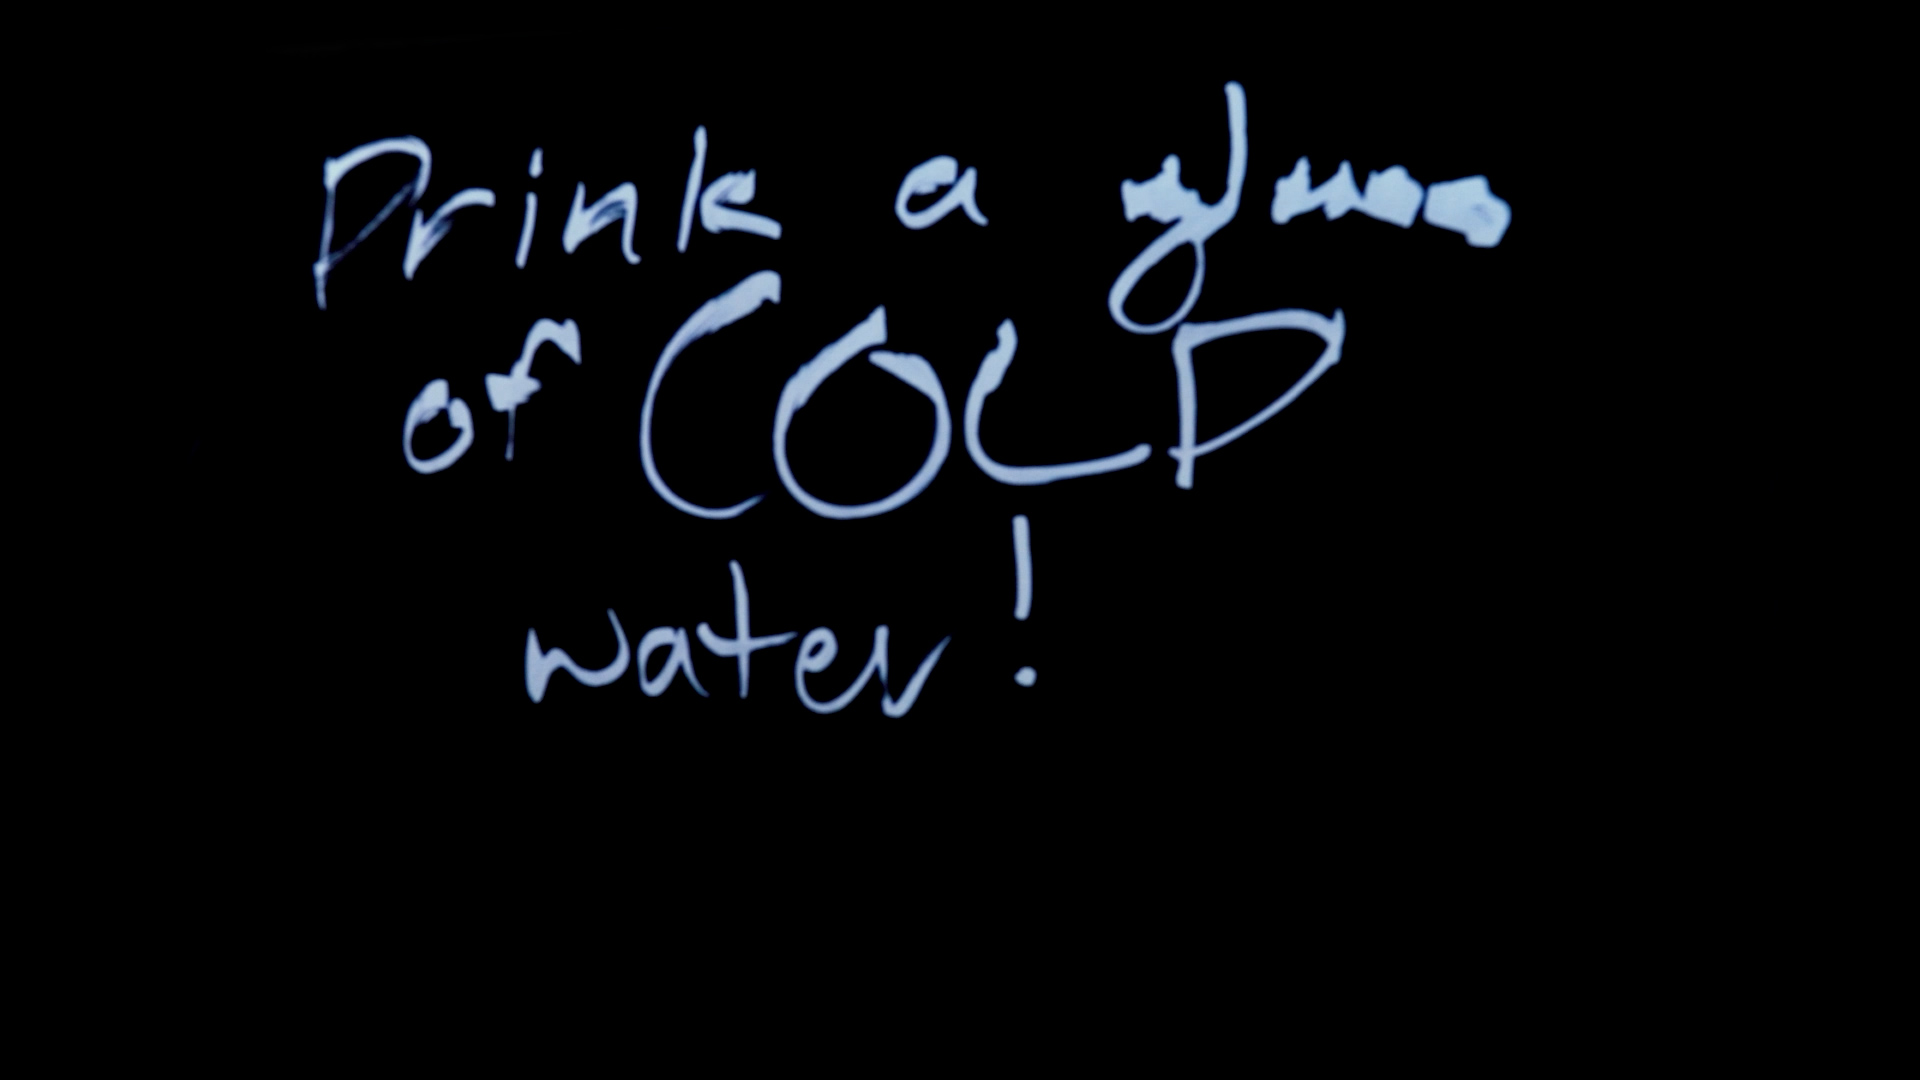 Drink a glass
of COLD
water!